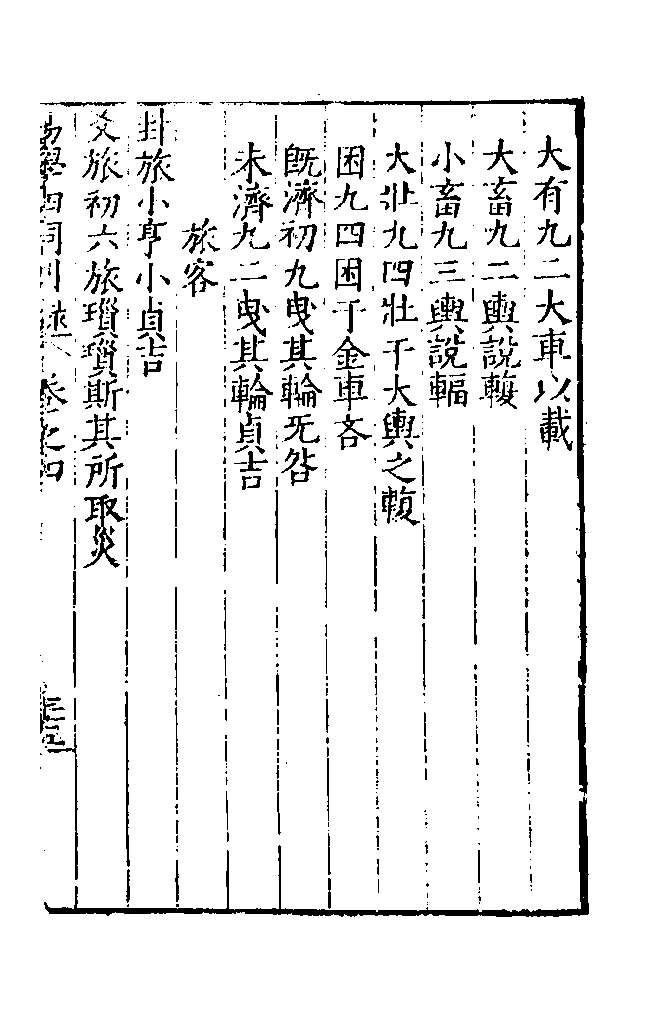 大有九二大車以載
大畜九二輿說輹
小畜九三輿說輻
大壯九四壯于大輿之輹
困九四困于金車吝
旣濟初九曳其輪无咎
未濟九二曳其輪貞吉
旅客
卦旅小亨小貞吉
爻旅初六旅瑣瑣斯其所取災
易學四同別錄卷之四